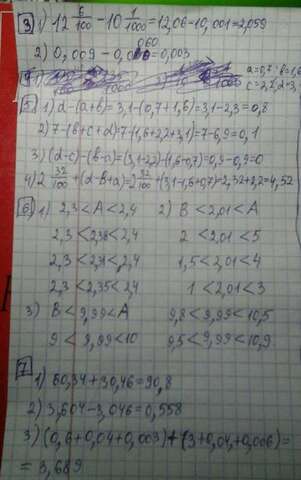 3 1) 12 6/100 - 10 1/1000 = 12,06 - 10,001 = 2,059
2) 0,009 - 0,006 = 0,003
a = 0,7
5 1) d - (a + b) = 3,1 - (0,7 + 1,6) = 3,1 - 2,3 = 0,8
2) 7 - (b + c + d) = 7 - (1,6 + 2,2 + 3,1) = 7 - 6,9 = 0,1
3) (d - c) - (b - a) = (3,1 - 2,2) - (1,6 - 0,7) = 0,9 - 0,9 = 0
4) 2 32/100 + (d - b + a) = 2 32/100 + (3,1 - 1,6 + 0,7) = 2,32 + 2,2 = 4,52
6 1) 2,3 < A < 2,4 2) B < 2,01 < A
2,3 < 2,38 < 2,4 2 < 2,01 < 5
2,3 < 2,31 < 2,4 1,5 < 2,01 < 4
2,3 < 2,35 < 2,4 1 < 2,01 < 3
3) B < 9,99 < A 9,8 < 9,99 < 10,5
9 < 9,99 < 10 9,5 < 9,99 < 10,9
7
1) 60,34 + 30,46 = 90,8
2) 3,604 - 3,046 = 0,558
3) (0,6 + 0,04 + 0,003) + (3 + 0,04 + 0,006) =
= 3,689